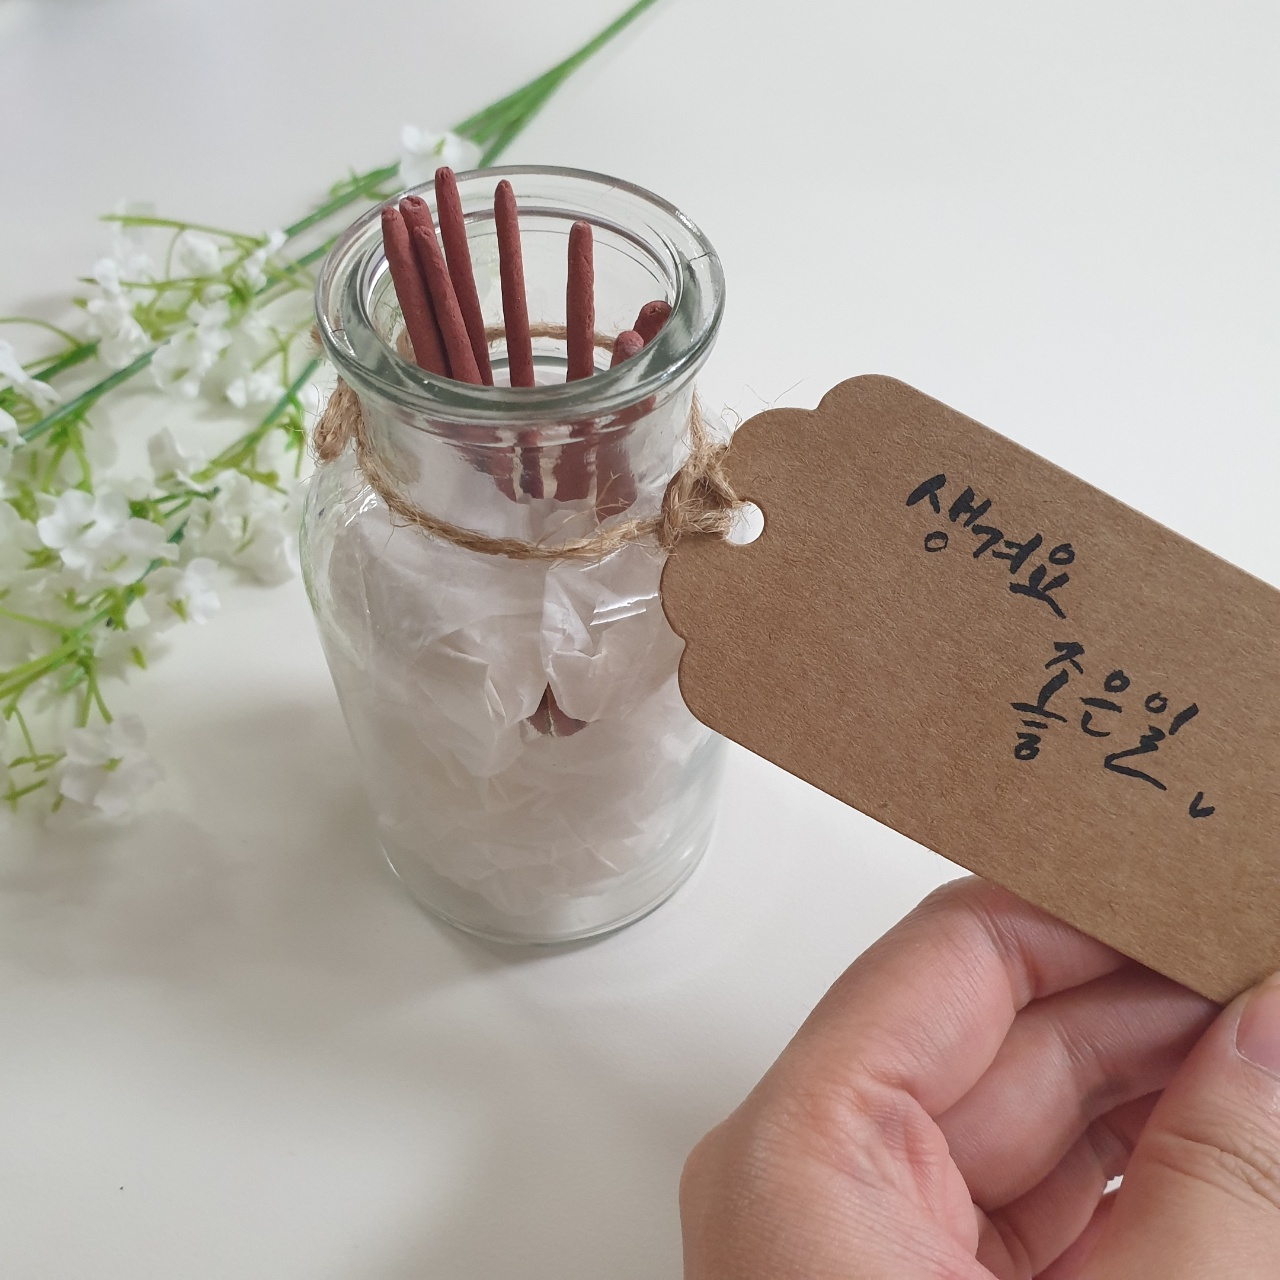 생겨요
좋은일